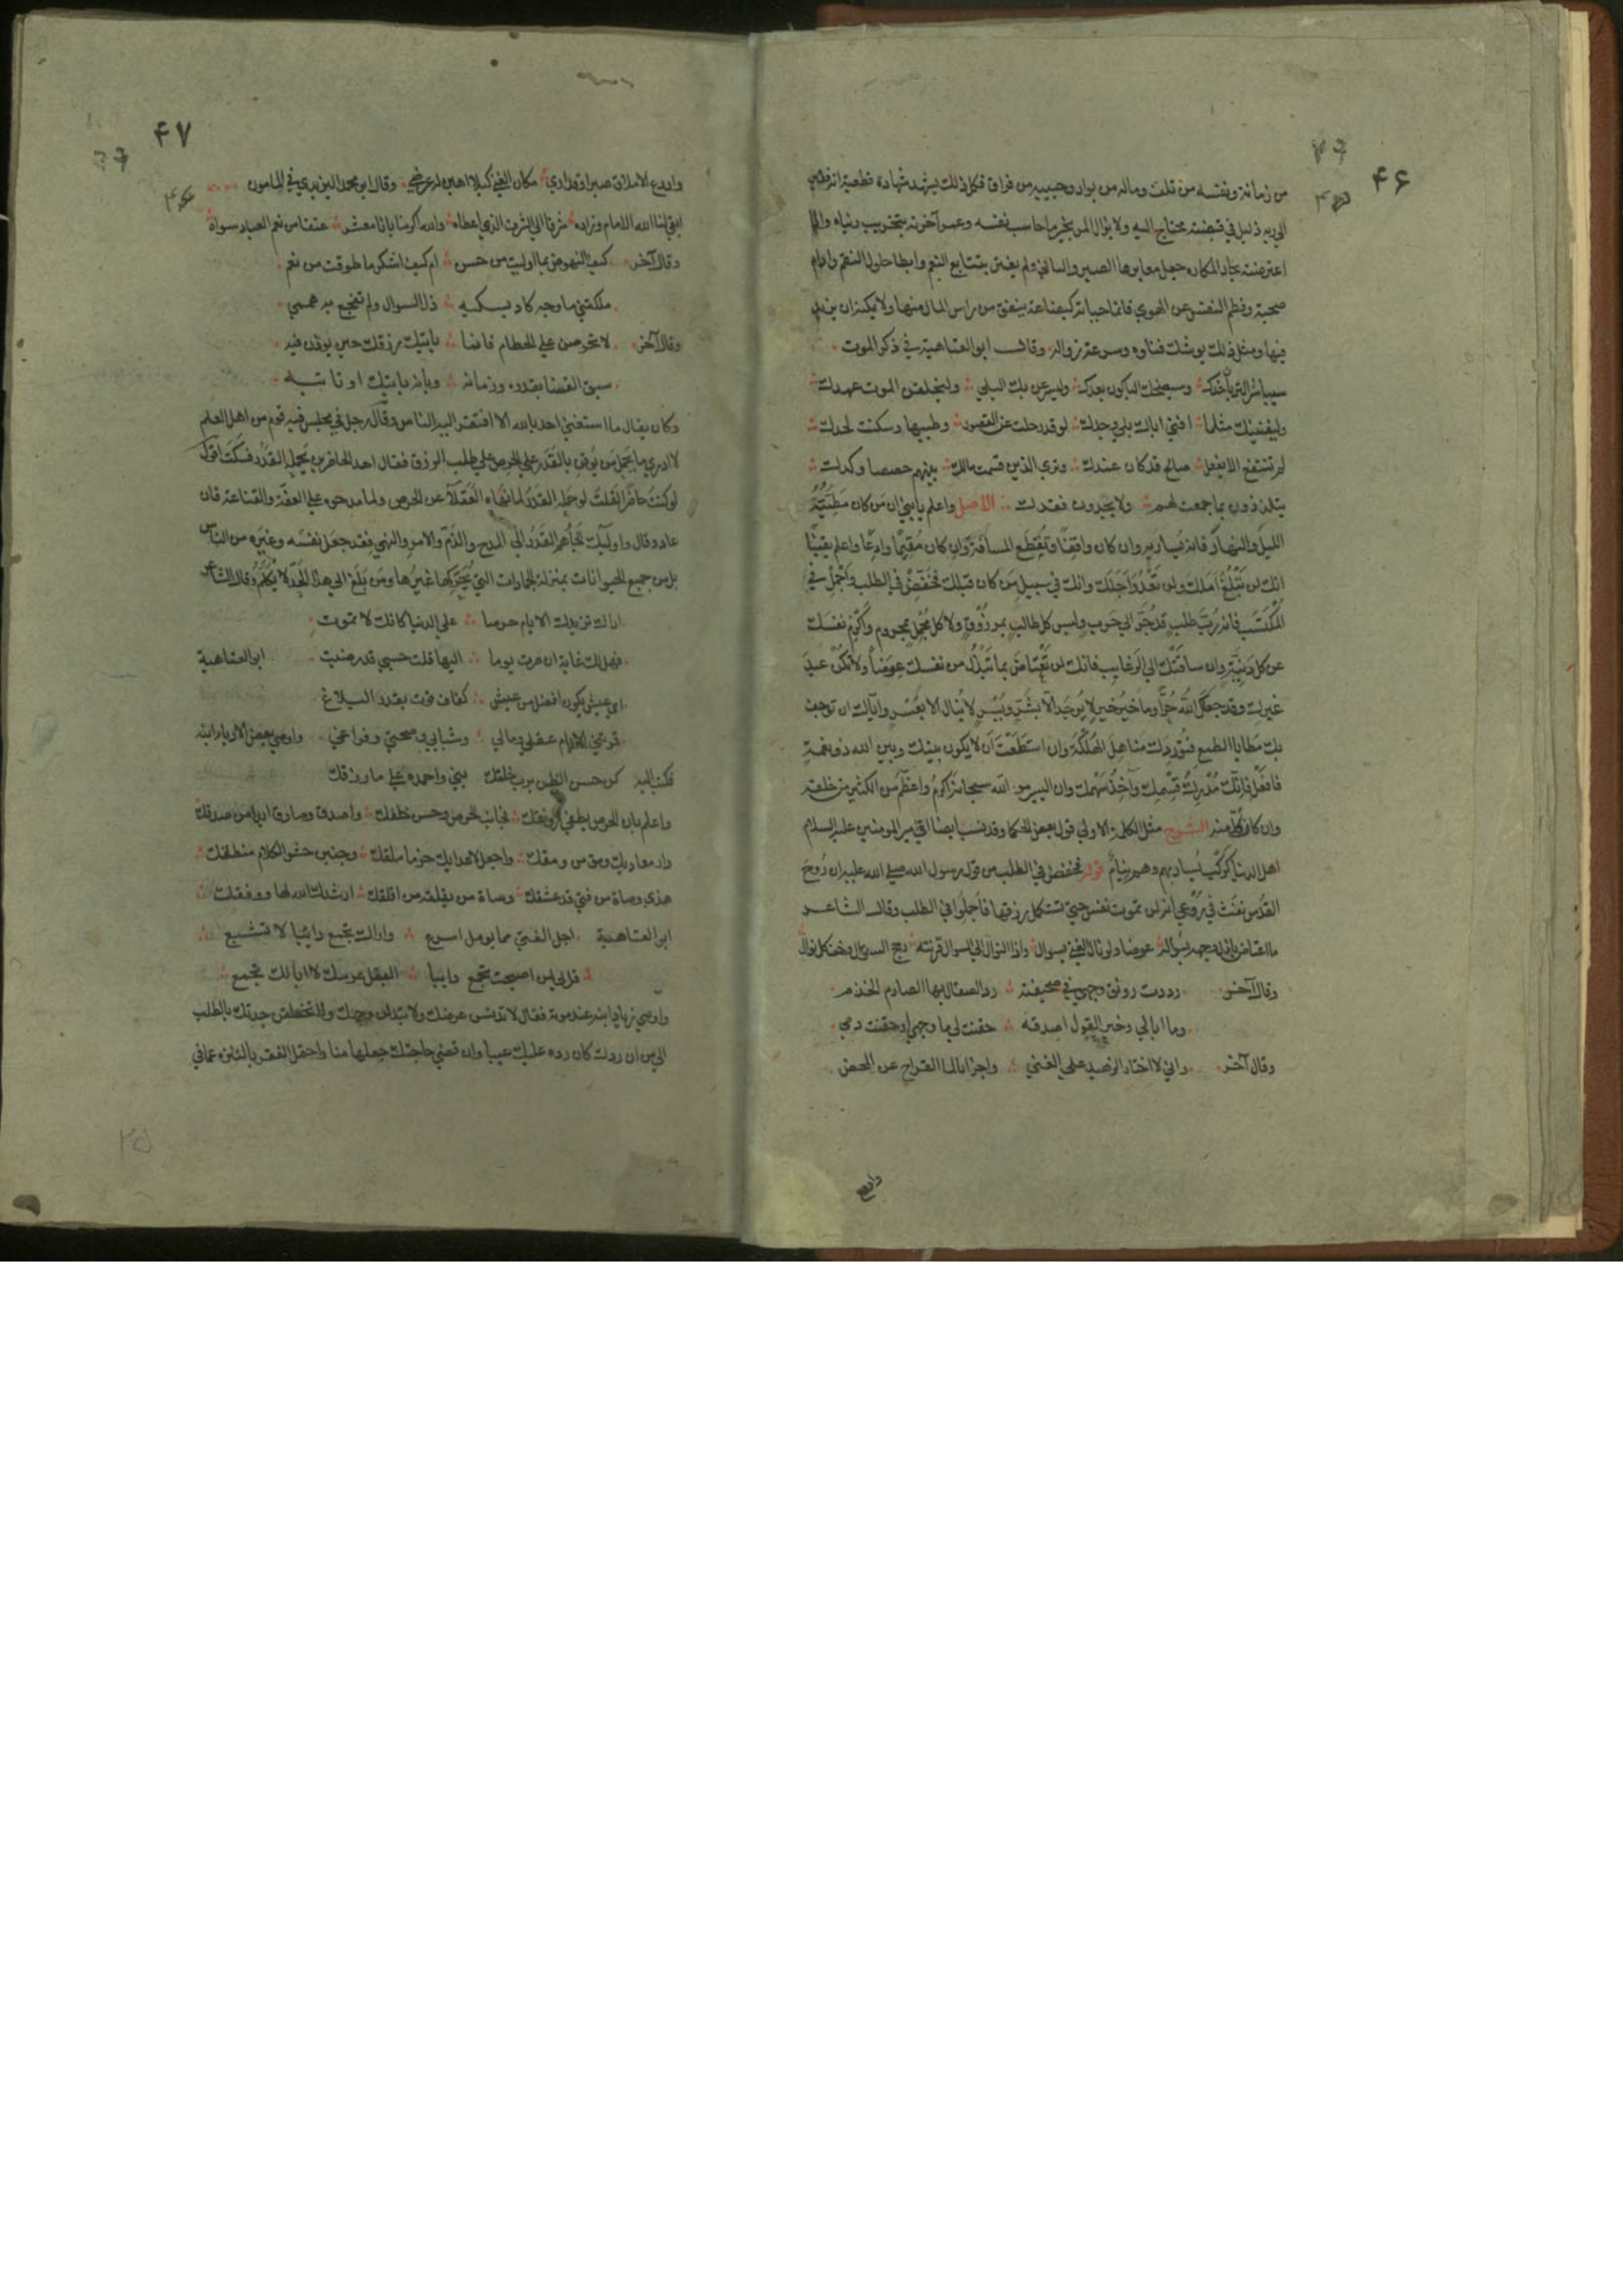 ۴۶
من زمانه ونفسه من تلف وماله من بوار وحبيبه من فراق فكل ذلك يشهد شهادة قطعية انه
الي ربه ذليل في قبضته محتاج اليه ولا يزال المر بخير ما حاسب نفسه وعمر آخرته بتخريب دنياه واذا
اعترضته بحار المكاره جعل معابرها الصبر والتاسي ولم يغتر بتتابع النعم وابطا حلول النقم وادام
صحبة وفطم النفس عن الهوي فانما حياته كبضاعة ينفق من راس المال منها ولا يمكنه ان يزيد
فيها ومثل ذلك يوشك فناوه وسرعة زواله وقال ابو العتاهية في ذكر الموت
سيباشر الترب خدك وسيضحك الباكون بعدك ولينزلن بك البلي وليخلفن الموت عهدك
وليفنينك مثلما افني اباك بلي وجدك لو قد رحلت عن القصور وطيبها وسكنت لحدك
لم تنتفع الا بفعل صالح قد كان عندك وتري الذين قسمت مالك بينهم حصصا وكدك
يتلذذون بما جمعت لهم ولا يجدون فقدك الأصل واعلم يا بني ان من كان مَطِيَّتُهُ
الليل والنهار فانه يُسار به وان كان واقفا ويَقطَع المسافة وان كان مُقيمًا وادِعًا واعلم يقينًا
انك لن تَبْلُغَ اَمَلك ولن تَعْدُوَ اَجَلَك وانك في سبيل من كان قبلك فخَفِّضْ في الطلب واَجْمِل في
المُكتَسَب فانه رُبَّ طلب قد جَرَّ الي حَرَب وليس كل طالب بمرزوق ولا كل مُجمِل بمحروم واَكْرِم نفسَك
عن كل دَنِيَّةٍ وان ساقَتْك الي الرَغايِب فانك لن تَعْتاضَ بما تَبْذُل من نفسك عِوَضًا ولا تكُنْ عبدَ
غيرك وقد جعلك اللهُ حُرًّا وما خَيرُ خيرٍ لا يُوجَد الا بشَرٍّ ويُسْرٍ لا يُنال الا بعُسْرٍ واياك ان توجف
بك مَطايا الطمع فتُورِدَك مناهِلَ الهَلَكَة وان استطَعْتَ اَن لا يكون بينك وبين الله ذو نعمةٍ
فافعَل فانك مُدْرِكٌ قِسْمَك وآخِذٌ سَهْمَك وان اليسير من الله سبحانه اكرمُ واعظَمُ من الكثير من خلقه
وان كان كلٌّ منه الشرح مثل الكلمة الاولي قول بعض الحكما وقد نسب ايضا الي امير المومنين عليه السلام
اهل الدنيا كركبٍ يُسار بهم وهم نيامٌ قوله فخفض في الطلب من قول رسول الله صلي الله عليه ان رُوحَ
القدُس نفَثَ في رُوعي انه لن تموت نفس حتي تستكمل رزقها فاَجمِلوا في الطلب وقال الشاعـر
ما اعتاض باذل وجهه بسؤاله عوضا ولو نال الغني بسوال واذا النوال الي السوال قرنته رجح السوال وخف كل نوال
وقال آخـر رددت رونق وجهي في صحيفته رد الصقال بها الصارم الخذم
وما ابالي وخير القول اصدقه حقنت لي ما وجهي او حقنت دمي
وقال آخـر واني لا اختار الزهيد علي الغني واجزا بالما القراح عن المحض
وادرع
۴۷
وادرع الاملاق صبرا وقد اري مكان الغني كيلا اهين له عرضي وقال ابو محمد اليزيدي في المامون
ابقي لنا الله الامام وزاده شرفا الي الشرف الذي اعطاه والله اكرمنا بانا معشر عتقا من نعم العباد سواه
وقال آخر كيف النهوض بما اوليت من حسن ام كيف اشكر ما طوقت من نعم
ملكتني ما وجه كاد يسكبه ذل السوال ولم تفجع به هممي
وقال آخر لا تحرصن علي الحطام فانما ياتيك رزقك حين يوذن فيه
سبق القضا بقدره وزمانه وبانه ياتيك او تاتيـه
وكان يقال ما استغني احد بالله الا افتقر اليه الناس وقال رجل في مجلس فيه قوم من اهل العلم
لا ادري ما يَحمِل من يُوقِن بالقَدَر علي الحرص علي طلب الرزق فقال احد الحاضرين يَحمِله القَدَر فسكت اقول
لو كنت حاضرًا لقلت لو حَمَله القدر لما نهاه العُقَلا عن الحرص ولما مدحوه علي العفة والقناعة فان
عاد وقال واوليك اَلجَأهم القَدَر الي المدح والذم والامر والنهي فقد جعل نفسه وغيره من الناس
بل من جميع الحيوانات بمنزلة الجمادات التي يُحَرِّكها غيرُها ومن بَلَغ الي هذا الحَدّ لا يُكَلَّم وقال الشاعر
اراك تزيدك الايام حرصا علي الدنيا كانك لا تموت
فهل لك غاية ان صرت يوما اليها قلت حسبي قد رضيت ابو العتاهية
اي عيش يكون افضل من عيش كفاف قوت بقدر البـلاغ
قمرتني الايام عقلي ومالي وشبابي وصحتي وفراغي واوصي بعض الادبا ابنه
فكتب اليه كن حسن الظن برب خلقك بني واحمده علي ما رزقك
واعلم بان الحرص يطفي رونقك فجانب الحرص وحسن خلقك واصدق وصادق ابدا من صدقك
دار معاديك ومق من ومقك واجعل لاعدايك حزما ملقك وجنبن حشو الكلام منطقك
هذي وصاة من فتي قد عشقك وصاة من يقلقه من اقلقك ارشدك الله لها ووفقك
ابو العتاهية اجل الفتي مما يومل اسرع واراك تجمع دايبًا لا تشبـع
قل لي لمن اصبحت تجمع دايبا البعل عرسك لا ابا لك تجمع
واوصي زياد ابنه عند موته فقال لا تدنس عرضك ولا تبذلن وجهك ولا تخلقن جدتك بالطلب
الي من ان ردك كان رده عليك عيبا وان قضي حاجتك جعلها منا واحتمل الفقر بالتنزه عما في
۲۵